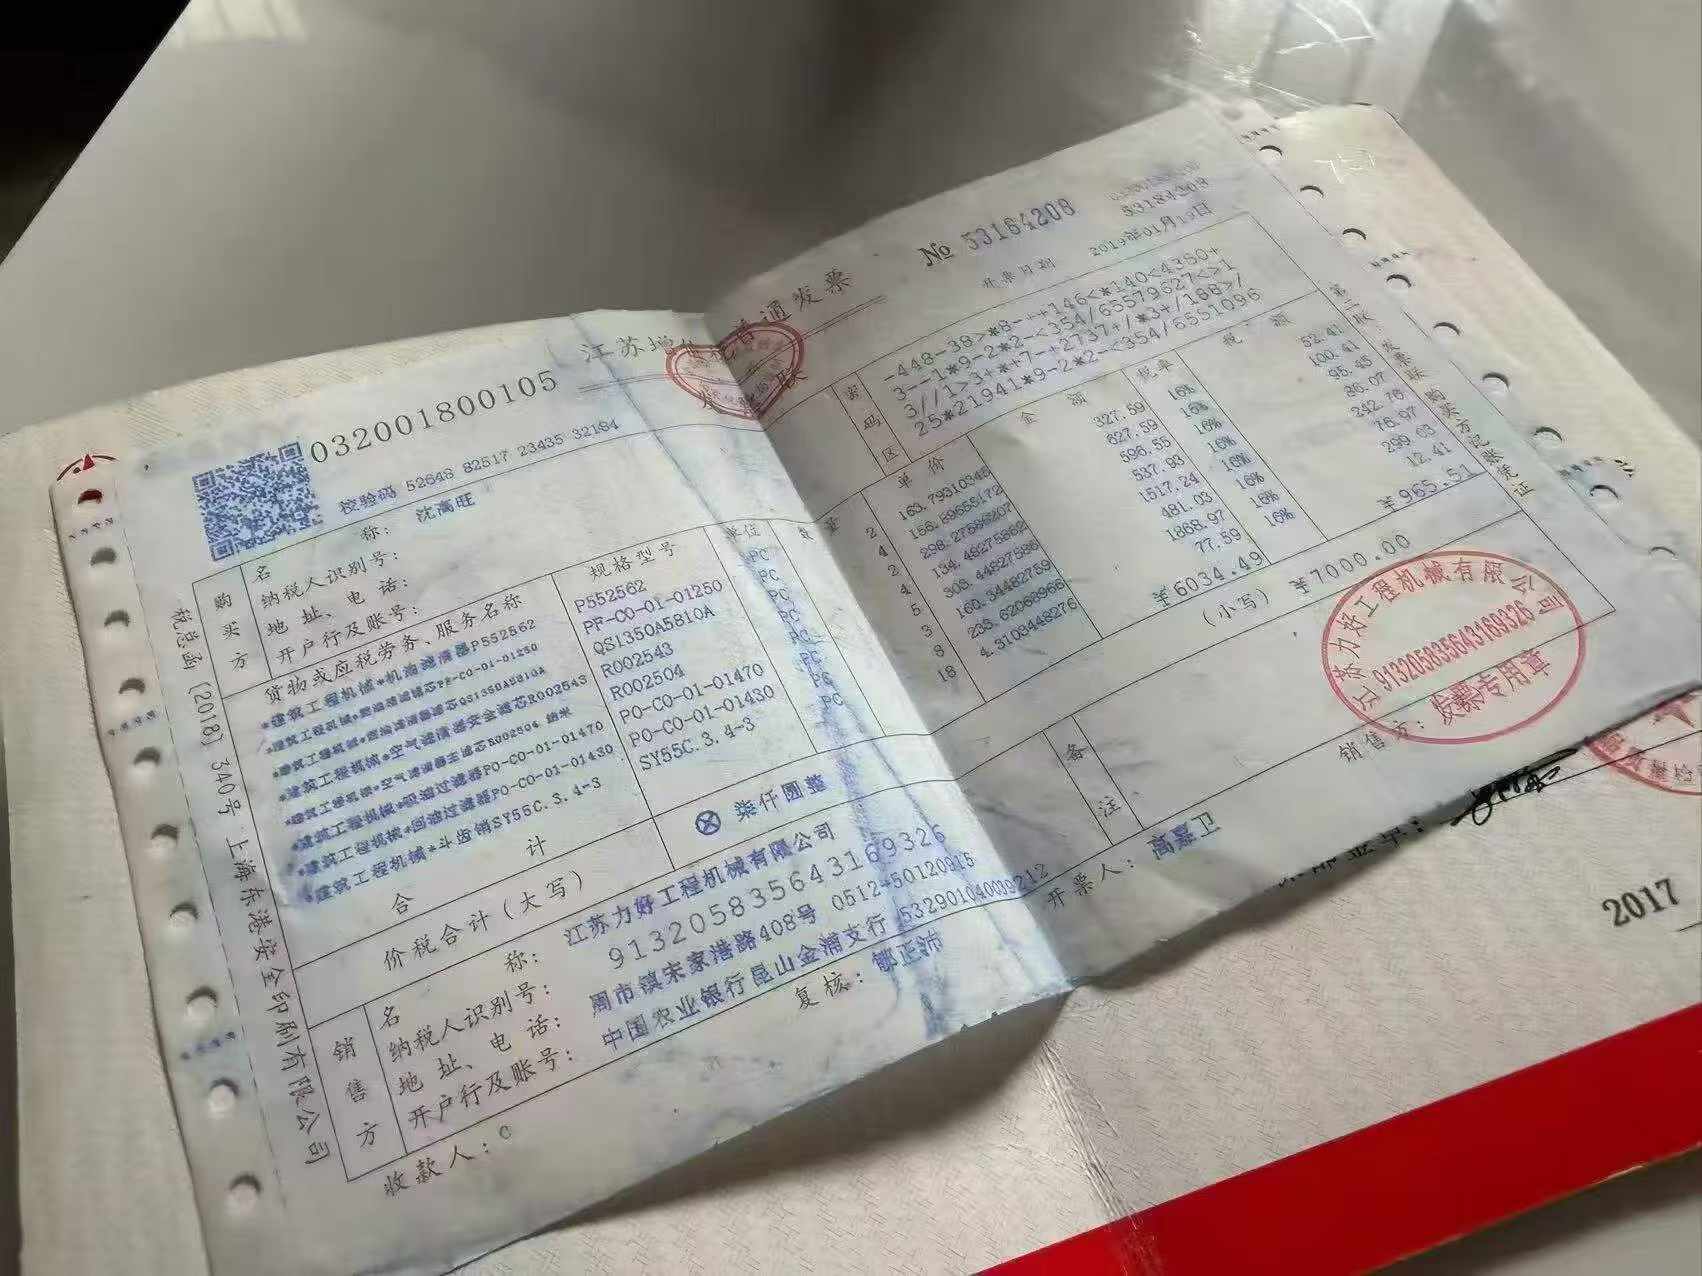 江苏增值税普通发票
发票联
032001800105
No 53164208
53184309
校验码 52648 82517 23435 32184
开票日期 2019年01月19日
税总函〔2018〕340号 上海东港安全印刷有限公司
第二联 发票联 购买方记账凭证
购买方
名 称: 沈高旺
纳税人识别号:
地 址、电 话:
开户行及账号:
密码区
-448-38>*8-++146<*140<4350+
3--1*9-2*2-<354/65579627<>1
3//1>3+*+7-+2737+/*3+/188>/
25*21941*9-2*2-<354/6551096
货物或应税劳务、服务名称 规格型号 单位 数量 单价 金额 税率 税额
*建筑工程机械*机油滤清器P552562 P552562 PC 2 163.7931034 327.59 16% 52.41
PF-CO-01-01250 PC 4 156.89655172 627.59 16% 100.41
QS1350A5810A PC 2 298.27586207 596.55 16% 95.45
*建筑工程机械*空气滤清器安全滤芯R002543 R002543 PC 4 134.48275862 537.93 16% 86.07
*建筑工程机械*空气滤清器主滤芯R002504 纳米 R002504 PC 5 303.44827586 1517.24 16% 242.76
*建筑工程机械*吸油过滤器PO-CO-01-01470 PO-CO-01-01470 PC 3 160.34482759 481.03 16% 76.97
*建筑工程机械*回油过滤器PO-CO-01-01430 PO-CO-01-01430 PC 8 233.62068966 1868.97 16% 299.03
*建筑工程机械*斗齿销SY55C.3.4-3 SY55C.3.4-3 PC 18 4.3103448276 77.59 16% 12.41
合 计 ¥6034.49 ¥965.51
价税合计(大写) ⊗ 柒仟圆整 (小写) ¥7000.00
销售方
名 称: 江苏力好工程机械有限公司
纳税人识别号: 913205835643169326
地 址、电 话: 周市镇宋家港路408号 0512-50120915
开户行及账号: 中国农业银行昆山金浦支行 532901040039212
备注
收款人: 复核: 郇正沛 开票人: 高嘉卫 销售方:
江苏力好工程机械有限公司
913205835643169326
发票专用章
2017